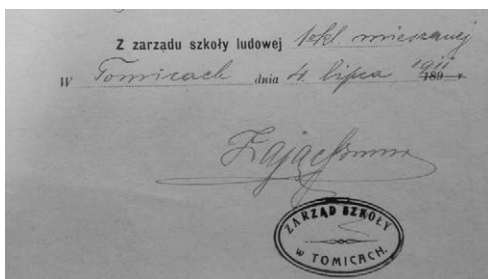 Z zarządu szkoły ludowej 1 kl. mieszanej
W Tomicach dnia 4 lipca 1911
189
ZARZĄD SZKOŁY
W TOMICACH.